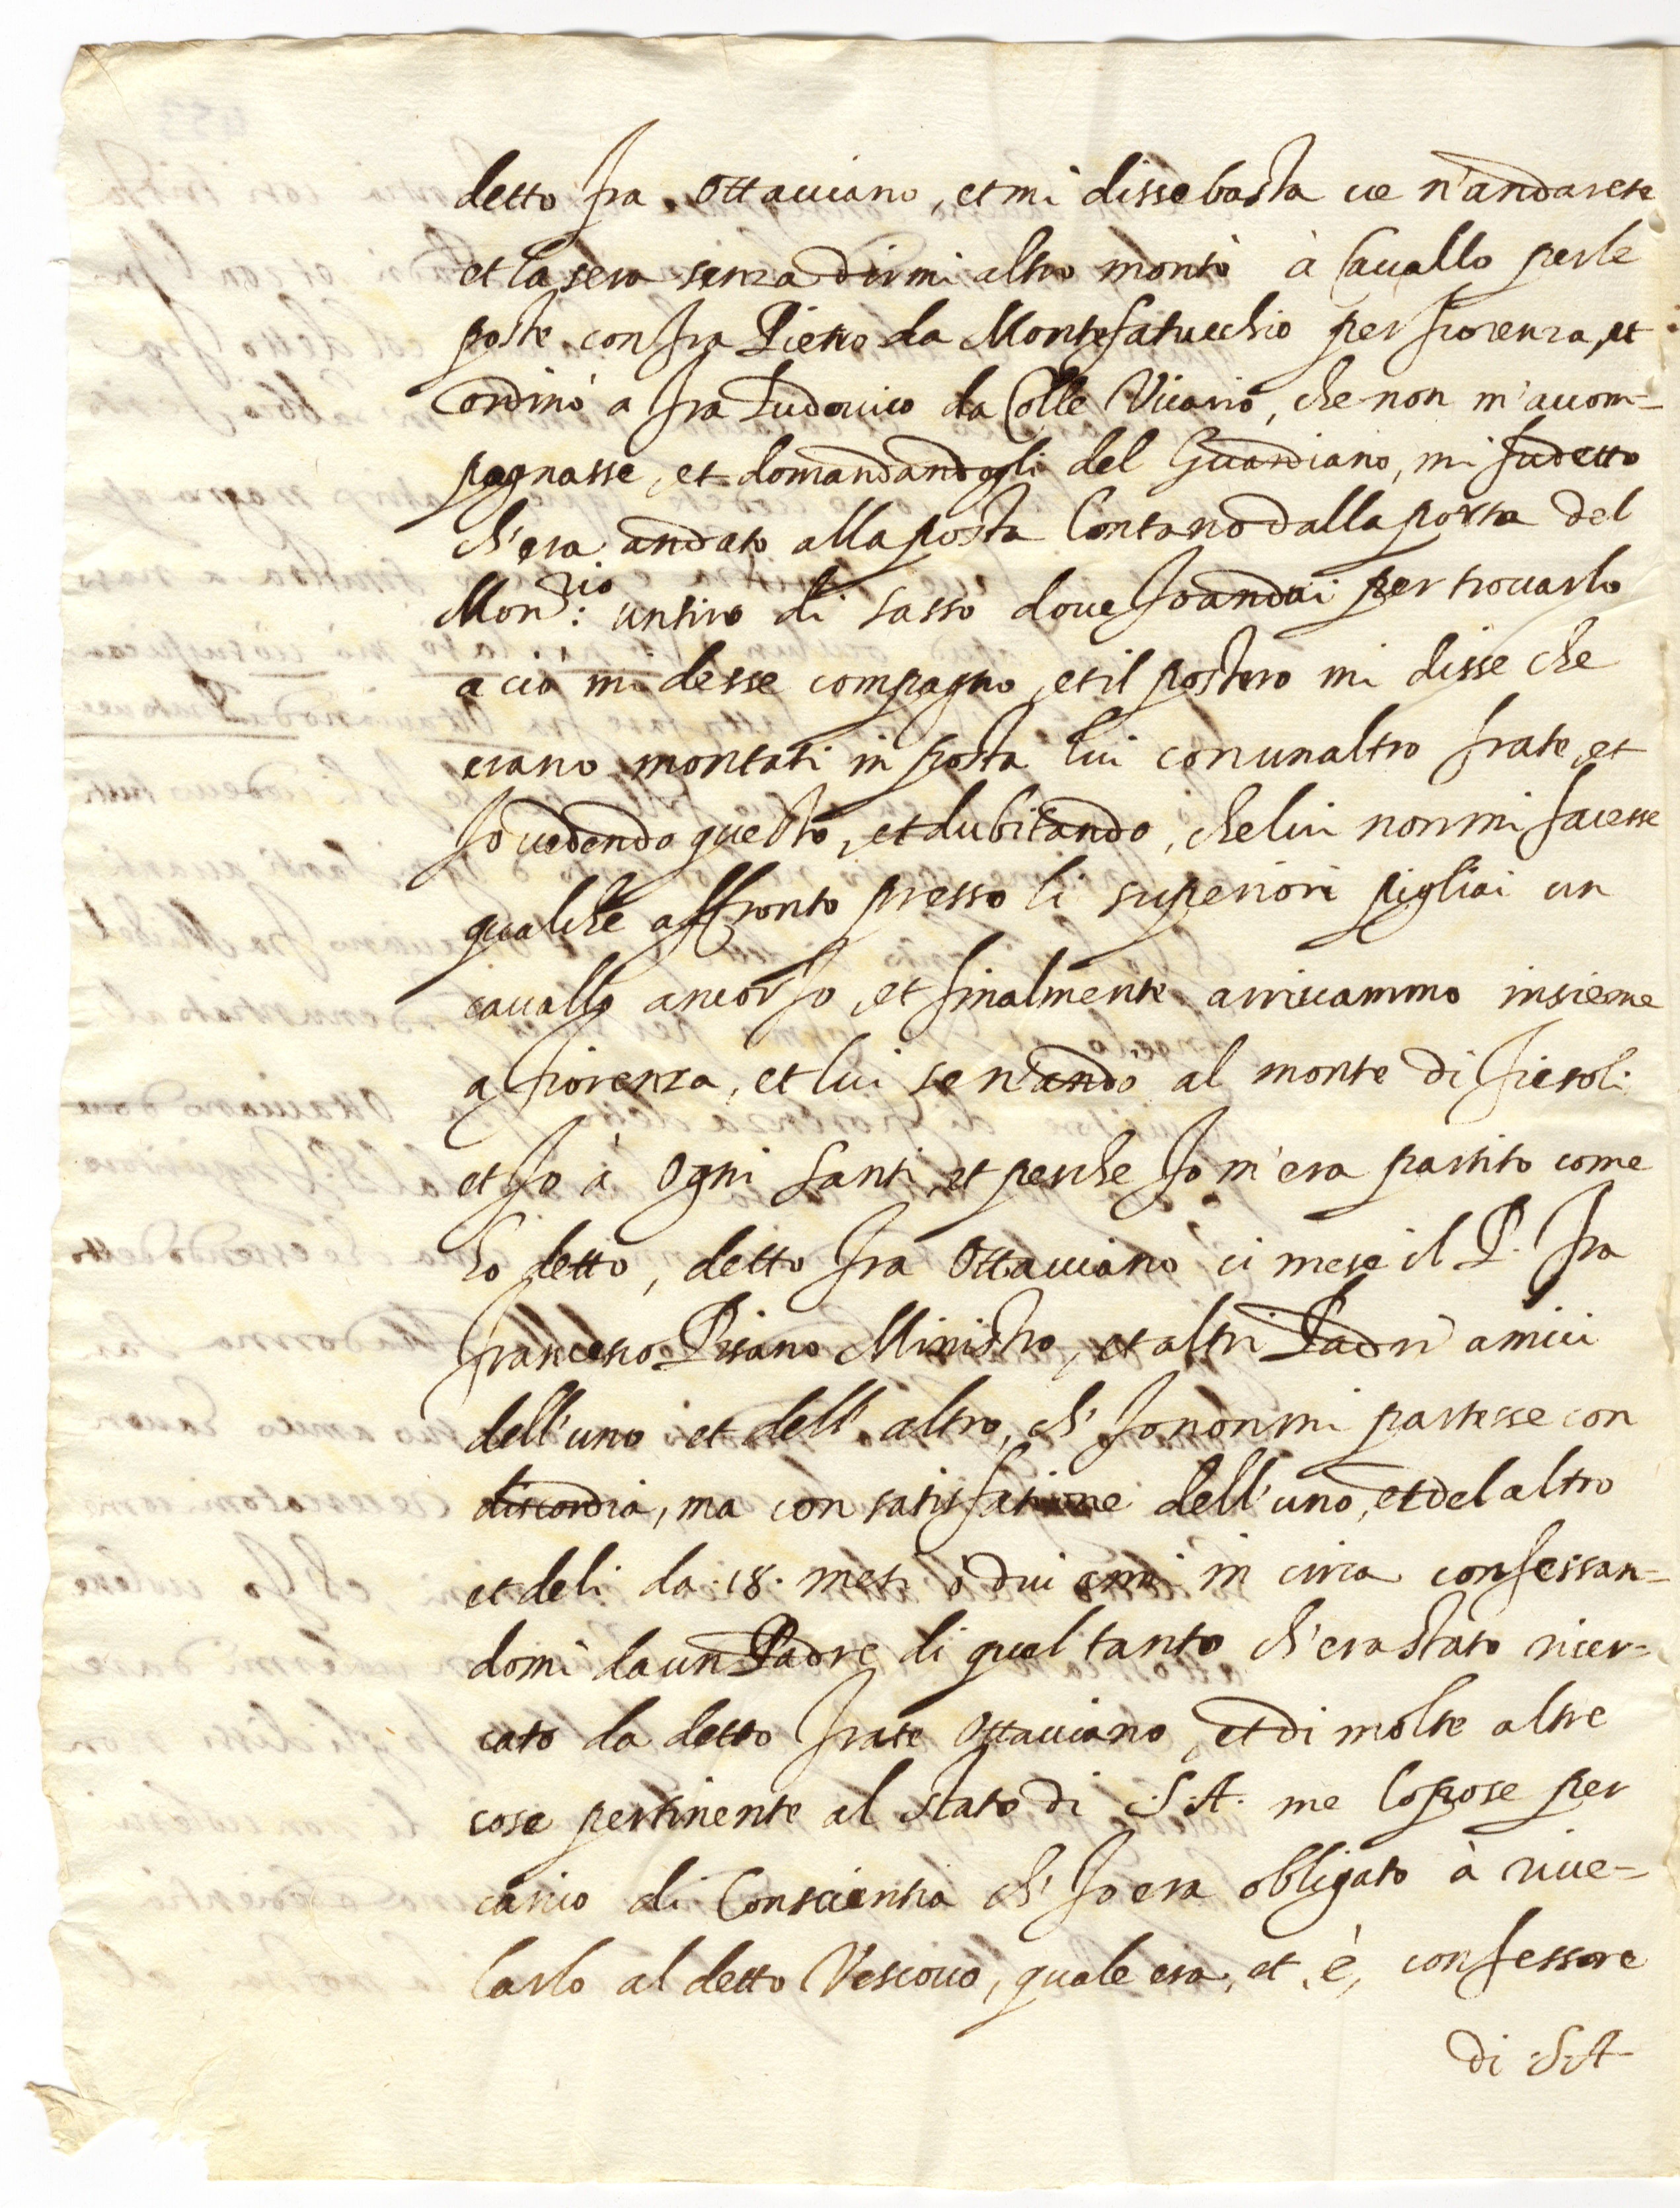 detto fra Ottaviano, et mi disse basta ve n'andarete
et la sera senza dirmi altro montò à Cavallo per le
poste con fra Pietro da Montefatucchio per fiorenza, et
ordinò a fra Ludovico da Colle Vicario, che non m'accom=
pagnasse, et domandandogli del Guardiano, mi fu detto
ch'era andato alla posta lontano dalla porta del
Mon.rio: un tiro di sasso dove Io andai per trovarlo
a ciò mi desse compagno, et il postiero mi disse che
erano montati in posta lui con un altro frate, et
Io vedendo questo, et dubitando, che lui non mi facesse
qualche affronto presso li superiori pigliai un
cavallo ancor Io, et finalmente arrivammo insieme
a fiorenza, et lui se n'andò al monte di fiesoli
et Io à Ogni Santi, et perche Io m'era partito come
ho detto, detto fra Ottaviano ci mese il P. fra
francesco Pisano Ministro, et altri Padri amici
dell'uno et dell'altro, ch'Io non mi partesse con
discordia, ma con satisfatione dell'uno, et del altro
et de li da .18. mesi ò dui anni in circa confessan=
domi da un Padre di quel tanto ch'era stato ricer=
cato da detto frate Ottaviano, et di molte altre
cose pertinente al stato di S.A. me lo pose per
carico di Conscientia ch'Io era obligato à rive=
larlo al detto Vescovo, quale era, et è, confessore
di S.A.